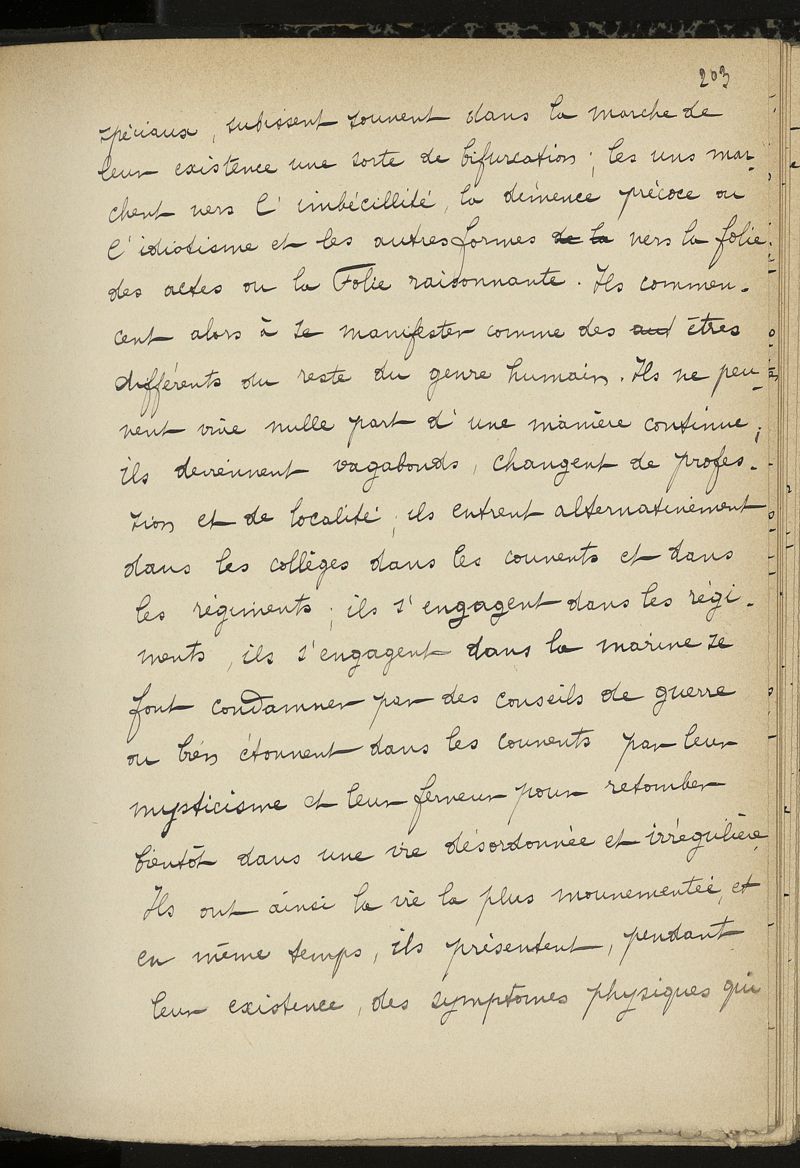 203
spéciaux, subissent souvent dans la marche de
leur existence une sorte de bifurcation ; les uns mar-
chent vers l'imbécillité, la démence précoce ou
l'idiotisme et les autres formes de la vers la folie
des actes ou la Folie raisonnante. Ils commen-
cent alors à se manifester comme des aut êtres
différents du reste du genre humain. Ils ne peu-
vent vivre nulle part d'une manière continue ;
ils deviennent vagabonds, changent de profes-
sion et de localité ; ils entrent alternativement
dans les collèges dans les couvents et dans
les régiments ; ils s'engagent dans les régi-
ments, ils s'engagent dans la marine se
font condamner par des conseils de guerre
ou bien étonnent dans les couvents par leur
mysticisme et leur ferveur pour retomber
bientôt dans une vie désordonnée et irrégulière
Ils ont ainsi la vie la plus mouvementée, et
en même temps, ils présentent, pendant
leur existence, des symptomes physiques qui